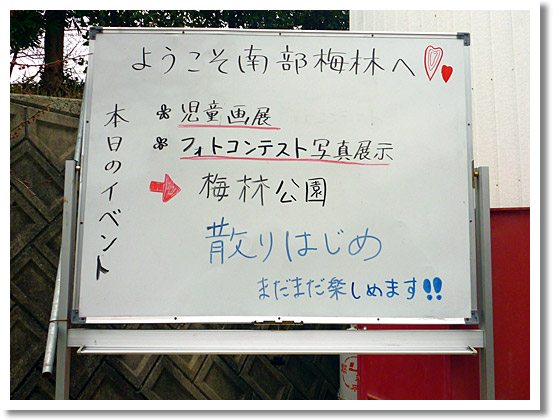 ようこそ南部梅林へ
本日のイベント
児童画展
フォトコンテスト写真展示
梅林公園
散りはじめ
まだまだ楽しめます!!